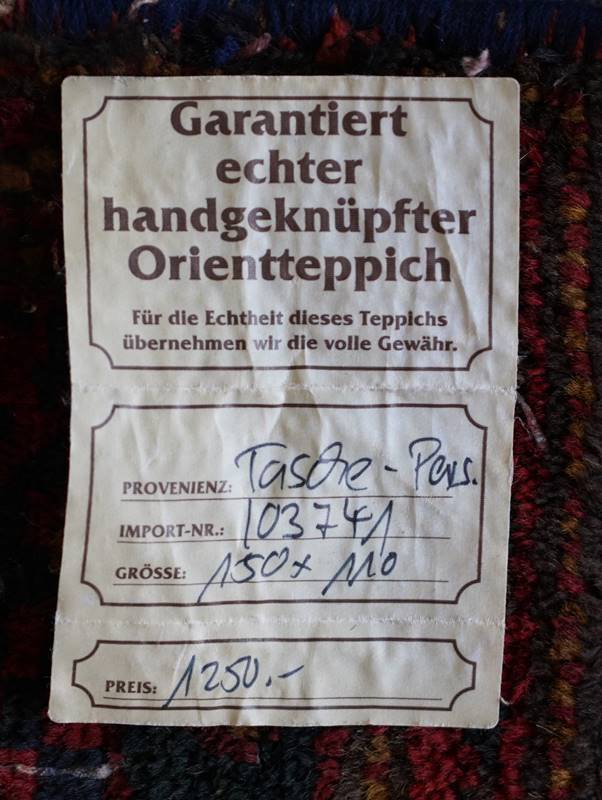 Garantiert
echter
handgeknüpfter
Orientteppich
Für die Echtheit dieses Teppichs
übernehmen wir die volle Gewähr.
PROVENIENZ: Tasche - Pers.
IMPORT-NR.: 103741
GRÖSSE: 150 x 110
PREIS: 1250.-